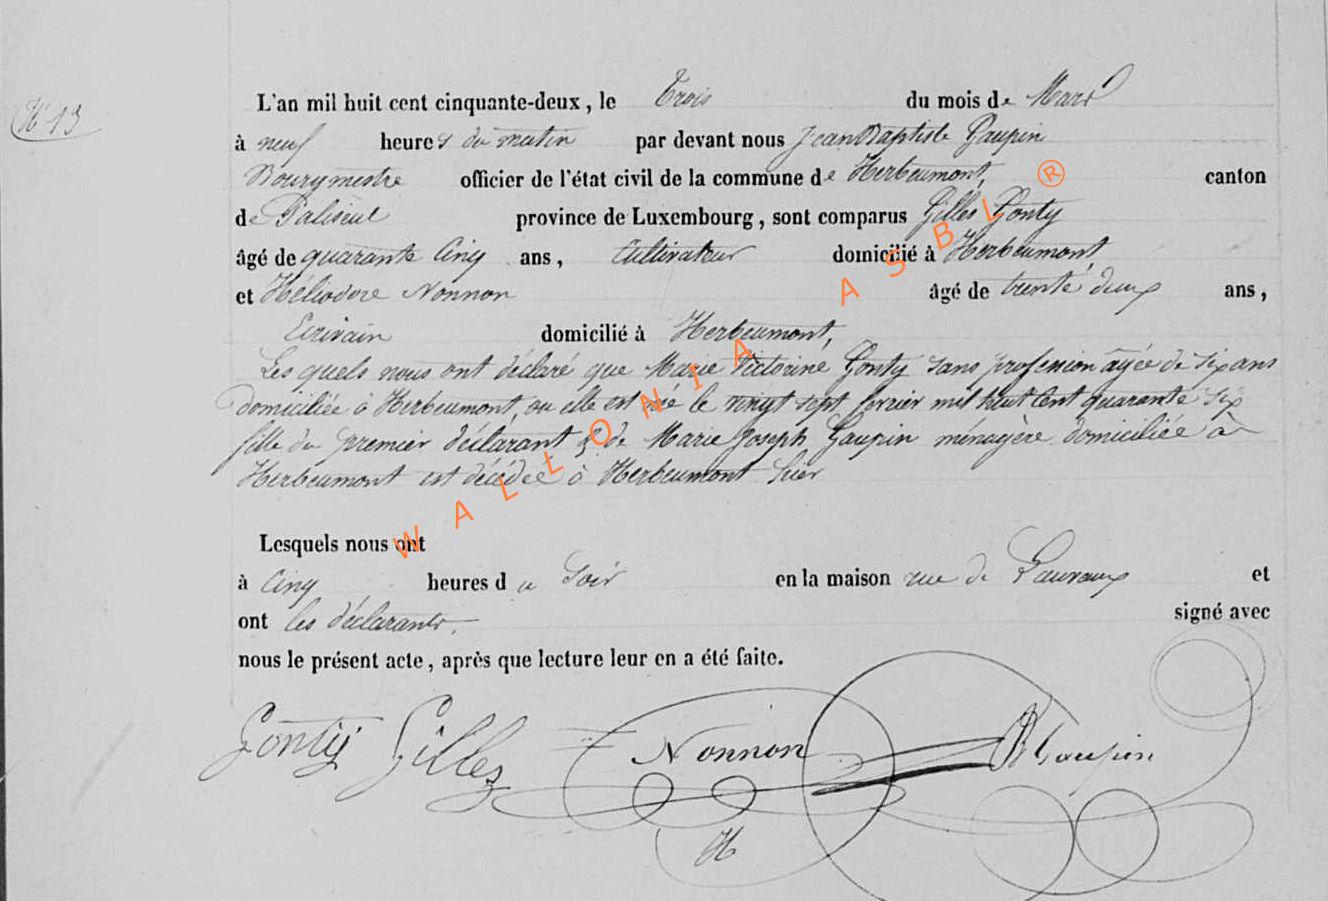 N° 13
L'an mil huit cent cinquante-deux, le Trois du mois de Mars
à neuf heures du matin par devant nous Jean Baptiste Gaupin
Bourgmestre officier de l'état civil de la commune de Herbeumont, canton
de Paliseul province de Luxembourg, sont comparus Gilles Gonty
âgé de quarante cinq ans, Cultivateur domicilié à Herbeumont
et Héliodore Nonnon âgé de trente deux ans,
Ecrivain domicilié à Herbeumont,
Les quels nous ont déclaré que Marie Victorine Gonty sans profession âgée de six ans
domiciliée à Herbeumont, ou elle est née le vingt sept fevrier mil huit cent quarante six
fille du premier déclarant & de Marie Joseph Gaupin ménagère domiciliée à
Herbeumont est décédée à Herbeumont hier
Lesquels nous ont
à cinq heures du soir en la maison rue de et
ont les déclarants. signé avec
nous le présent acte, après que lecture leur en a été faite.
Gonty Gilles Nonnon Gaupin
H
WALLONIA ASBL ®